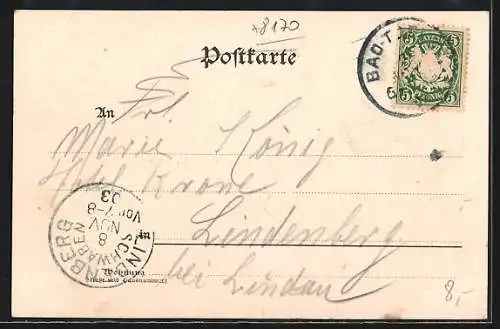 +8170
Postkarte
BAD-T
5 BAYERN 5
5 5
An Frl.
Marie König
Hotel Krone
in Lindenberg
Wohnung
bei Lindau
LINDENBERG
SCHWABEN
8 NOV
Vor. 7-8
03
8,-